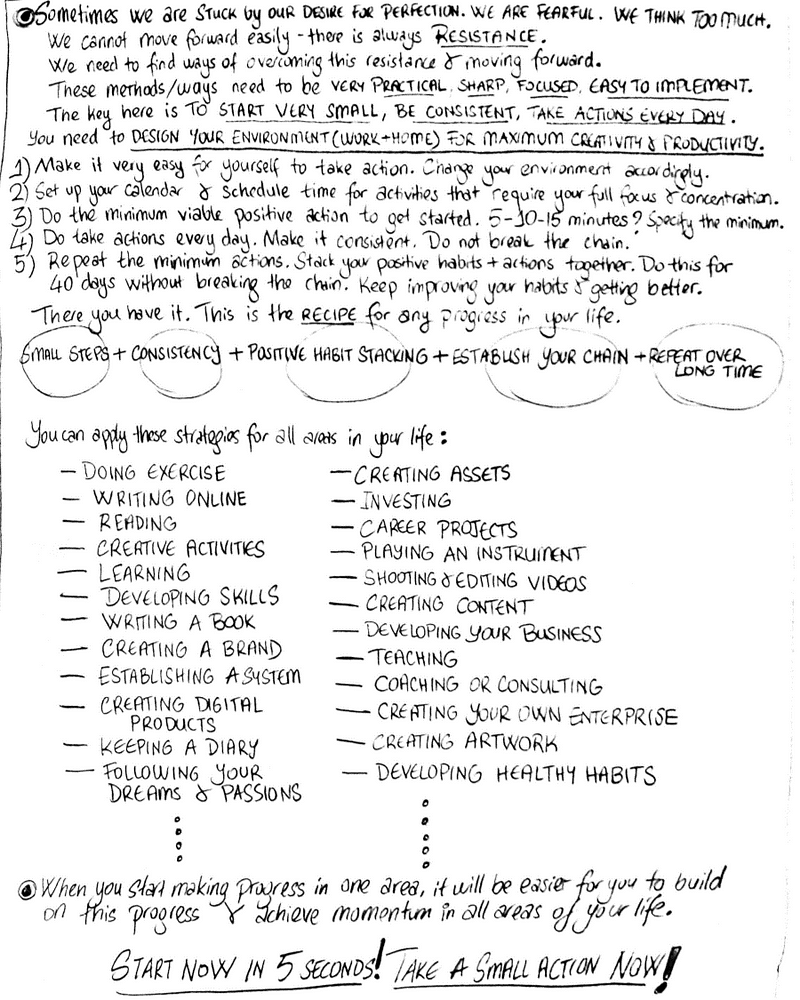 Sometimes we are STUCK by OUR DESIRE FOR PERFECTION. WE ARE FEARFUL. WE THINK TOO MUCH.
We cannot move forward easily - there is always RESISTANCE.
We need to find ways of overcoming this resistance & moving forward.
These methods/ways need to be VERY PRACTICAL, SHARP, FOCUSED, EASY TO IMPLEMENT.
The key here is TO START VERY SMALL, BE CONSISTENT, TAKE ACTIONS EVERY DAY.
You need to DESIGN YOUR ENVIRONMENT (WORK+HOME) FOR MAXIMUM CREATIVITY & PRODUCTIVITY.
1) Make it very easy for yourself to take action. Change your environment accordingly.
2) Set up your calendar & schedule time for activities that require your full focus & concentration.
3) Do the minimum viable positive action to get started. 5-10-15 minutes? Specify the minimum.
4) Do take actions every day. Make it consistent. Do not break the chain.
5) Repeat the minimum actions. Stack your positive habits + actions together. Do this for
40 days without breaking the chain. Keep improving your habits & getting better.
There you have it. This is the RECIPE for any progress in your life.
SMALL STEPS + CONSISTENCY + POSITIVE HABIT STACKING + ESTABLISH YOUR CHAIN + REPEAT OVER
LONG TIME
You can apply these strategies for all areas in your life:
— DOING EXERCISE
— WRITING ONLINE
— READING
— CREATIVE ACTIVITIES
— LEARNING
— DEVELOPING SKILLS
— WRITING A BOOK
— CREATING A BRAND
— ESTABLISHING A SYSTEM
— CREATING DIGITAL
PRODUCTS
— KEEPING A DIARY
— FOLLOWING YOUR
DREAMS & PASSIONS
— CREATING ASSETS
— INVESTING
— CAREER PROJECTS
— PLAYING AN INSTRUMENT
— SHOOTING & EDITING VIDEOS
— CREATING CONTENT
— DEVELOPING YOUR BUSINESS
— TEACHING
— COACHING OR CONSULTING
— CREATING YOUR OWN ENTERPRISE
— CREATING ARTWORK
— DEVELOPING HEALTHY HABITS
When you start making progress in one area, it will be easier for you to build
on this progress & achieve momentum in all areas of your life.
START NOW IN 5 SECONDS! TAKE A SMALL ACTION NOW!